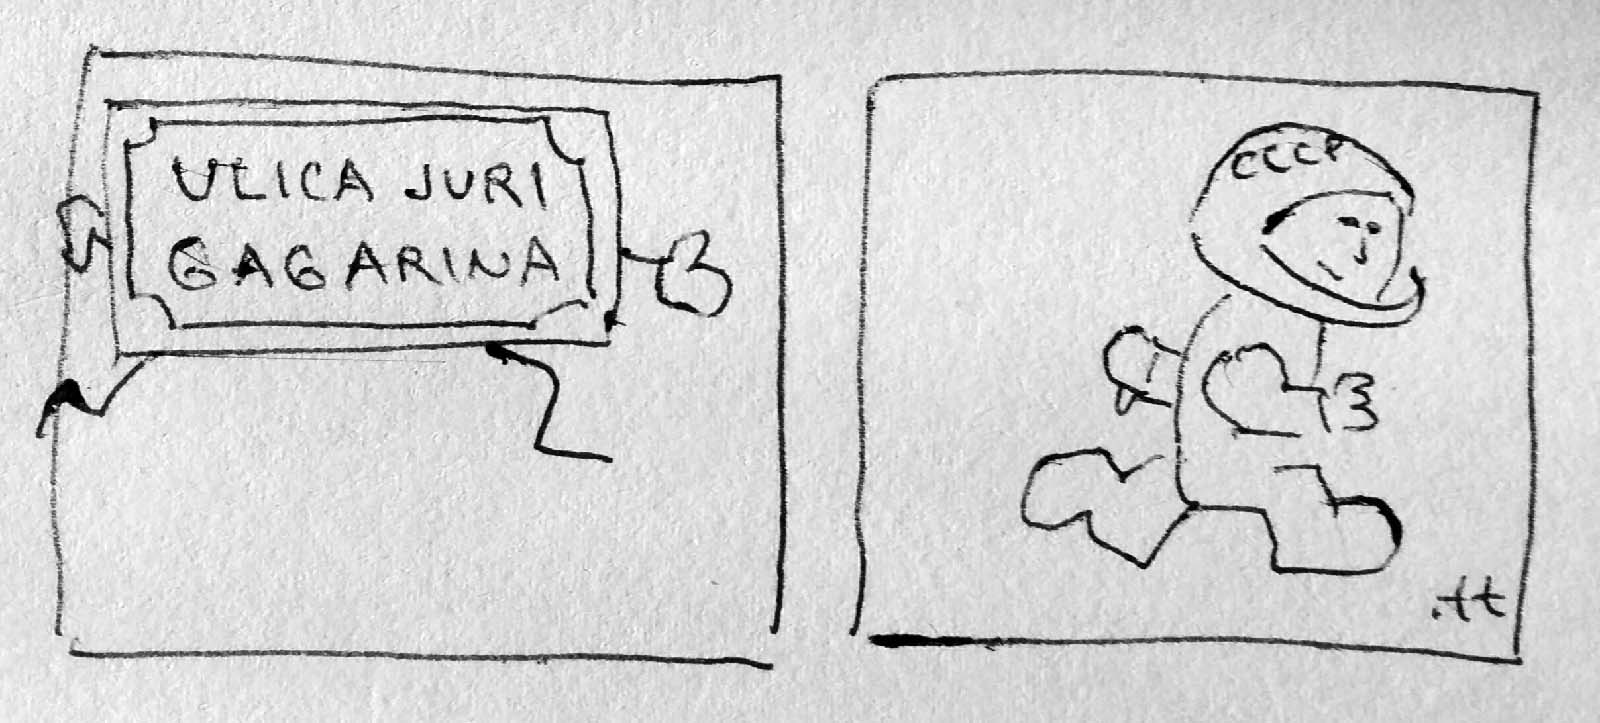 ULICA JURI
GAGARINA
CCCP
.tt